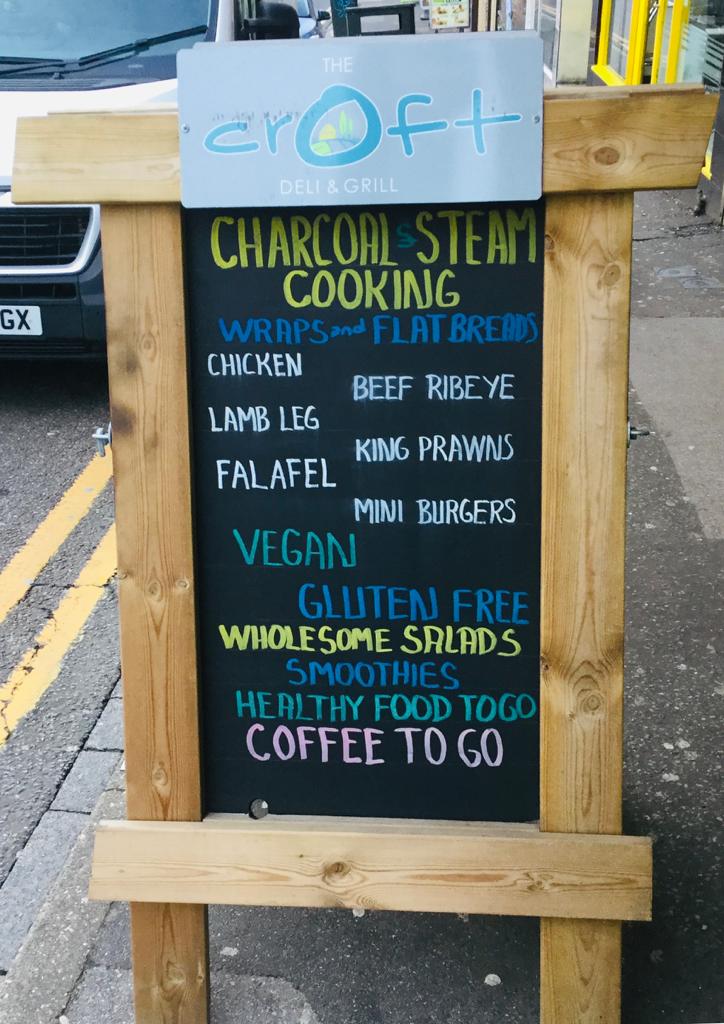 THE
crOft
DELI & GRILL
CHARCOAL & STEAM
COOKING
WRAPS and FLATBREADS
CHICKEN
BEEF RIBEYE
LAMB LEG
KING PRAWNS
FALAFEL
MINI BURGERS
VEGAN
GLUTEN FREE
WHOLESOME SALADS
SMOOTHIES
HEALTHY FOOD TO GO
COFFEE TO GO
GX